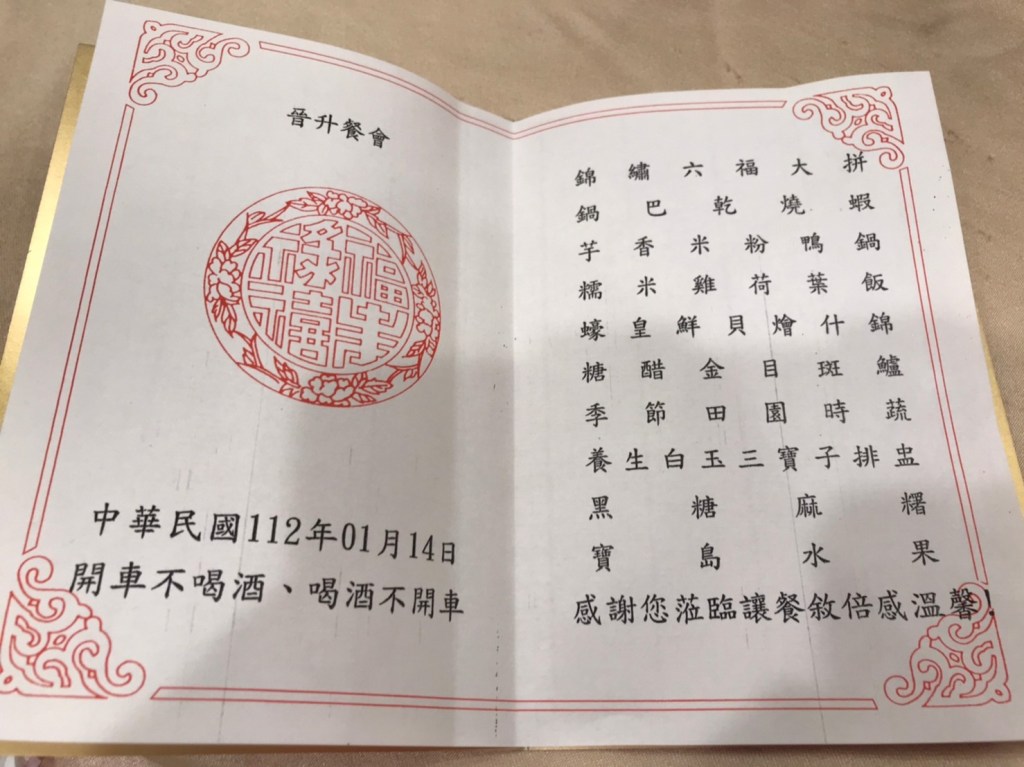 晉升餐會
福祿
壽禧
中華民國112年01月14日
開車不喝酒、喝酒不開車
錦繡六福大拼
鍋巴乾燒蝦
芋香米粉鴨鍋
糯米雞荷葉飯
蠔皇鮮貝燴什錦
糖醋金目斑鱸
季節田園時蔬
養生白玉三寶子排盅
黑糖麻糬
寶島水果
感謝您蒞臨讓餐敘倍感溫馨!